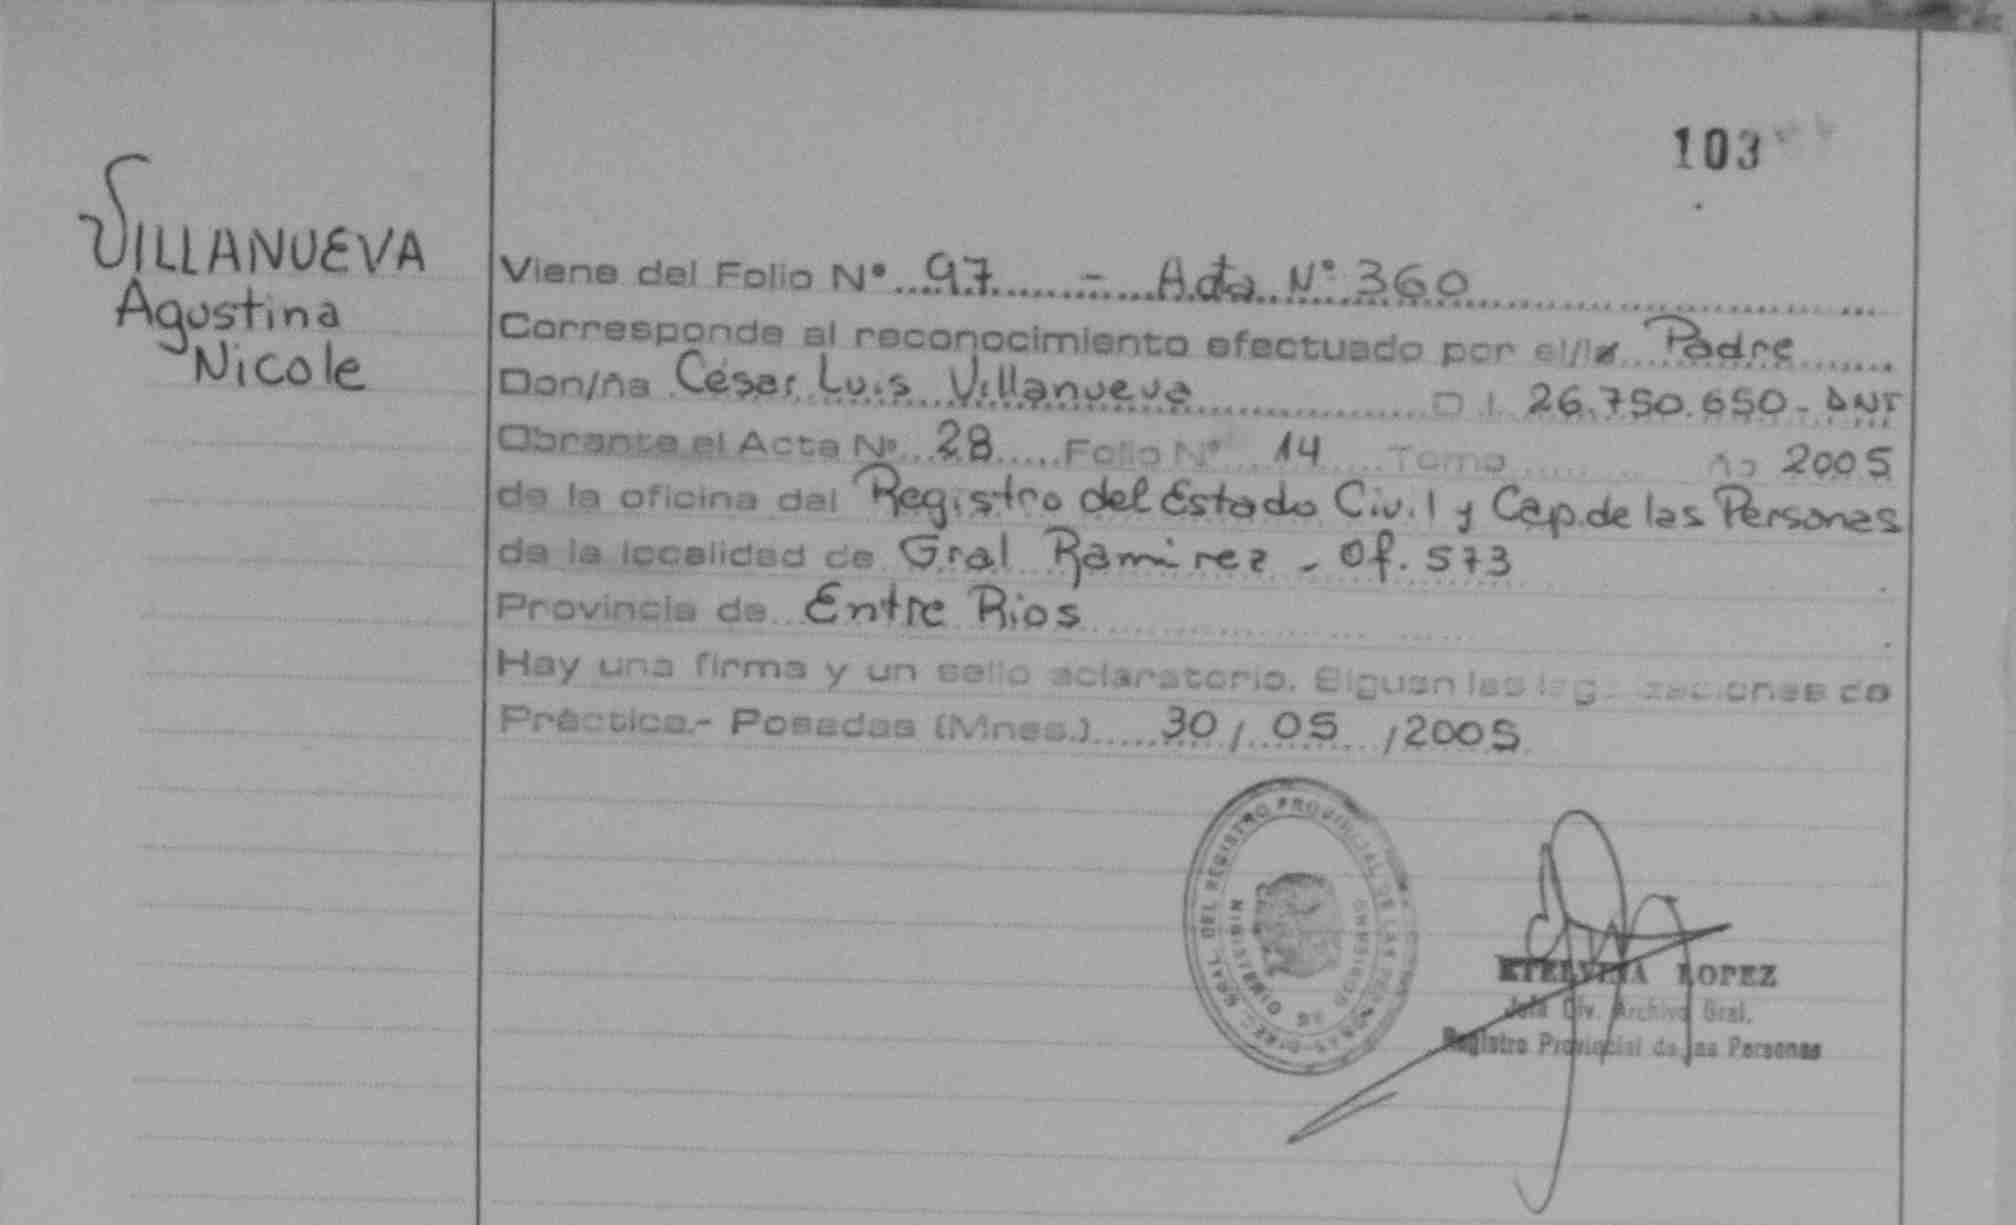 103
VILLANUEVA
Agustina
Nicole
Viene del Folio Nº 97 - Acta Nº 360
Corresponde al reconocimiento efectuado por el/la Padre
Don/ña César Luis Villanueva D.I. 26.750.650 - DNI
Obrante el Acta Nº 28 Folio Nº 14 Tomo ño 2005
de la oficina del Registro del Estado Civil y Cap. de las Personas
de la localidad de Gral Ramirez - Of. 573
Provincia de Entre Rios
Hay una firma y un sello aclaratorio. Siguen las legalizaciones de
Práctica.- Posadas (Mnes.) 30 / 05 / 2005
DIREC. GRAL. DEL REGISTRO PROVINCIAL DE LAS PERSONAS
ETELVINA LOPEZ
Jefa Div. Archivo Gral.
Registro Provincial de las Personas